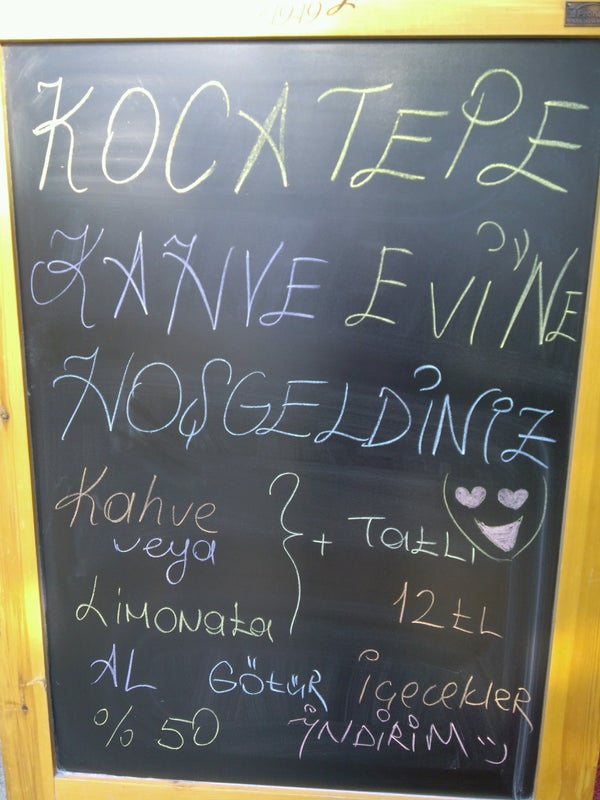 1919
KOCATEPE
KAHVE EVİNE
HOŞGELDİNİZ
Kahve
veya
LİMONata
} + TatLı
12 tL
AL GÖtüR İçecekler
% 50 İNDİRİM :)